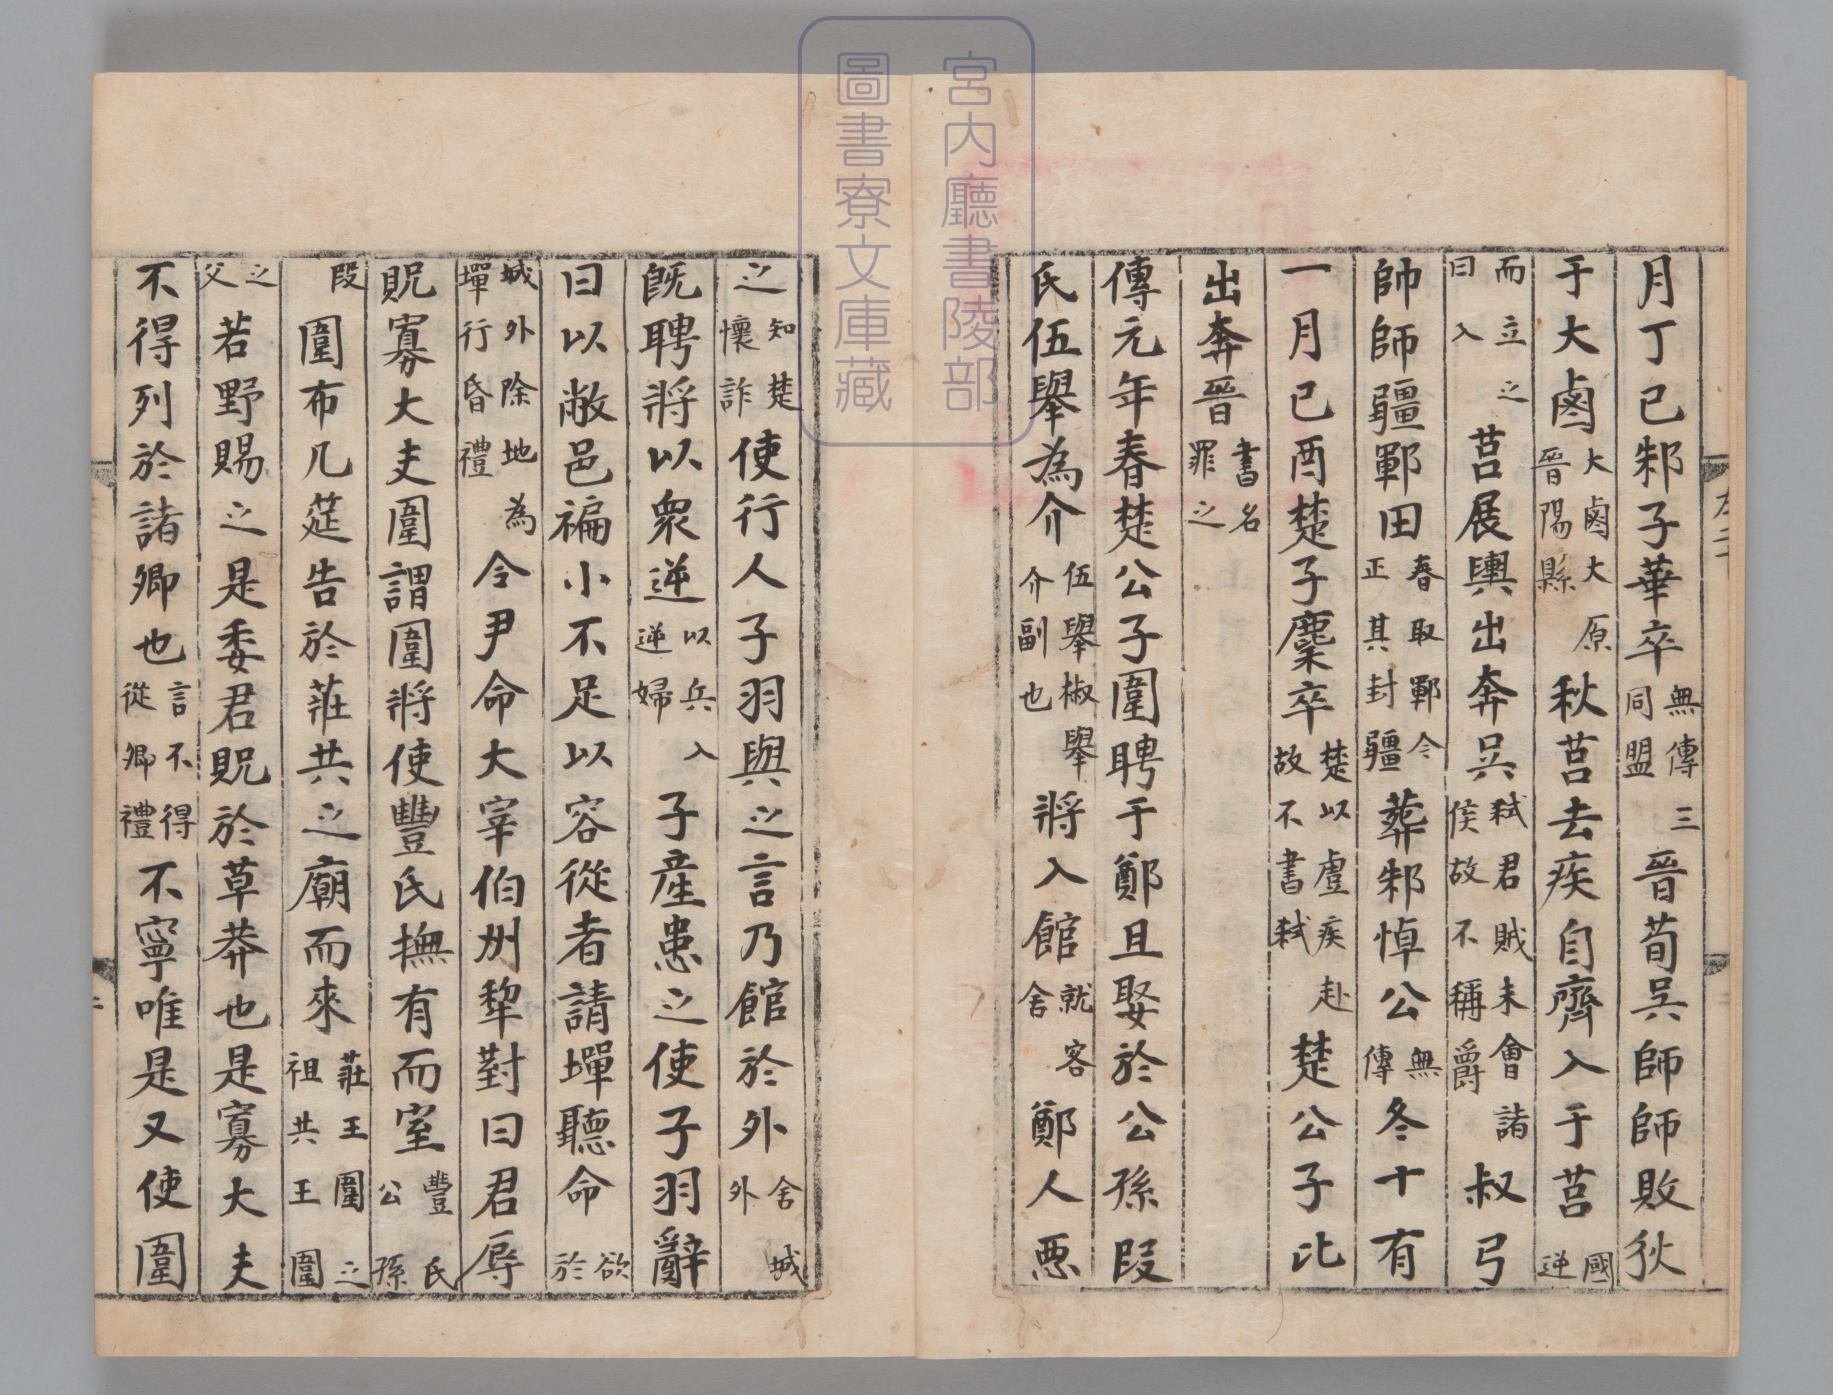 月丁已邾子華卒無傳三同盟晉荀吳師師敗狄
于大鹵大鹵大原晉陽縣秋莒去疾自齊入于莒國逆
而立之曰入莒展輿出奔吳弒君賊未會諸侯故不稱爵叔弓
帥師疆鄆田春取鄆今正其封疆葬邾悼公無傳冬十有
一月已酉楚子麇卒楚以虐疾赴故不書弒楚公子比
出奔晉書名罪之
傳元年春楚公子圍聘于鄭且娶於公孫段
氏伍舉為介伍舉椒舉介副也將入館就客舍鄭人惡
之知楚懷詐使行人子羽與之言乃館於外舍城外
既聘將以眾逆以兵入逆婦子產患之使子羽辭
曰以敝邑褊小不足以容從者請墠聽命欲於
城外除地為墠行昏禮令尹命大宰伯州犁對曰君辱
貺寡大夫圍謂圍將使豐氏撫有而室豐氏公孫
段圍布几筵告於莊共之廟而來莊王圍之祖共王圍
之父若野賜之是委君貺於草莽也是寡大夫
不得列於諸卿也言不得從卿禮不寧唯是又使圍
宮內廳書陵部
圖書寮文庫藏